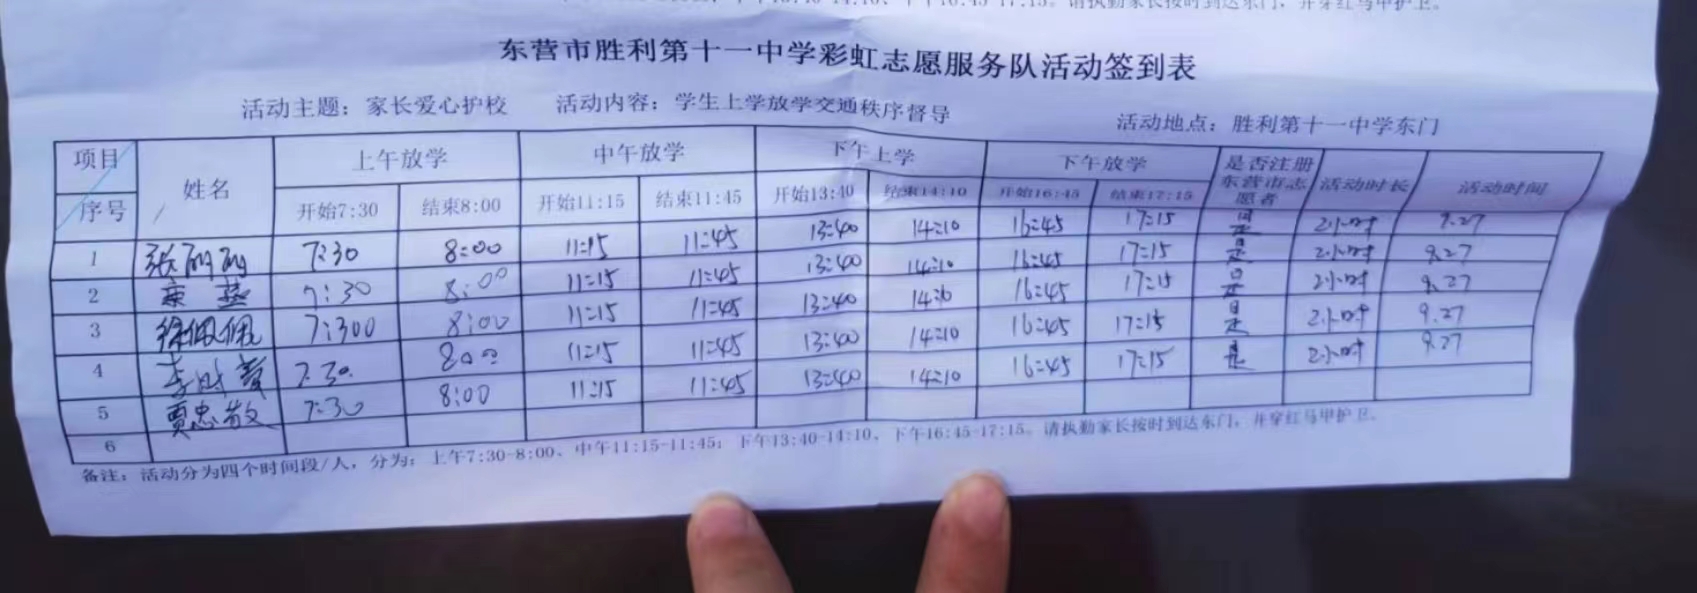 东营市胜利第十一中学彩虹志愿服务队活动签到表
活动主题：家长爱心护校 活动内容：学生上学放学交通秩序督导 活动地点：胜利第十一中学东门
项目 序号 姓名 上午放学 中午放学 下午上学 下午放学 是否注册东营市志愿者 活动时长 活动时间
开始7:30 结束8:00 开始11:15 结束11:45 开始13:40 结束14:10 开始16:45 结束17:15
1 张丽丽 7:30 8:00 11:15 11:45 13:40 14:10 16:45 17:15 是 2小时 9.27
2 7:30 8:00 11:15 11:45 13:40 14:10 16:45 17:15 是 2小时 9.27
3 徐佩佩 7:300 8:00 11:15 11:45 13:40 14:10 16:45 17:15 是 2小时 9.27
4 7:30 8:00 11:15 11:45 13:40 14:10 16:45 17:15 是 2小时 9.27
5 贾忠敏 7:30 8:00 11:15 11:45 13:40 14:10 16:45 17:15 是 2小时 9.27
6
备注：活动分为四个时间段/人，分为：上午7:30-8:00，中午11:15-11:45；下午13:40-14:10，下午16:45-17:15。请执勤家长按时到达东门，并穿红马甲护卫。